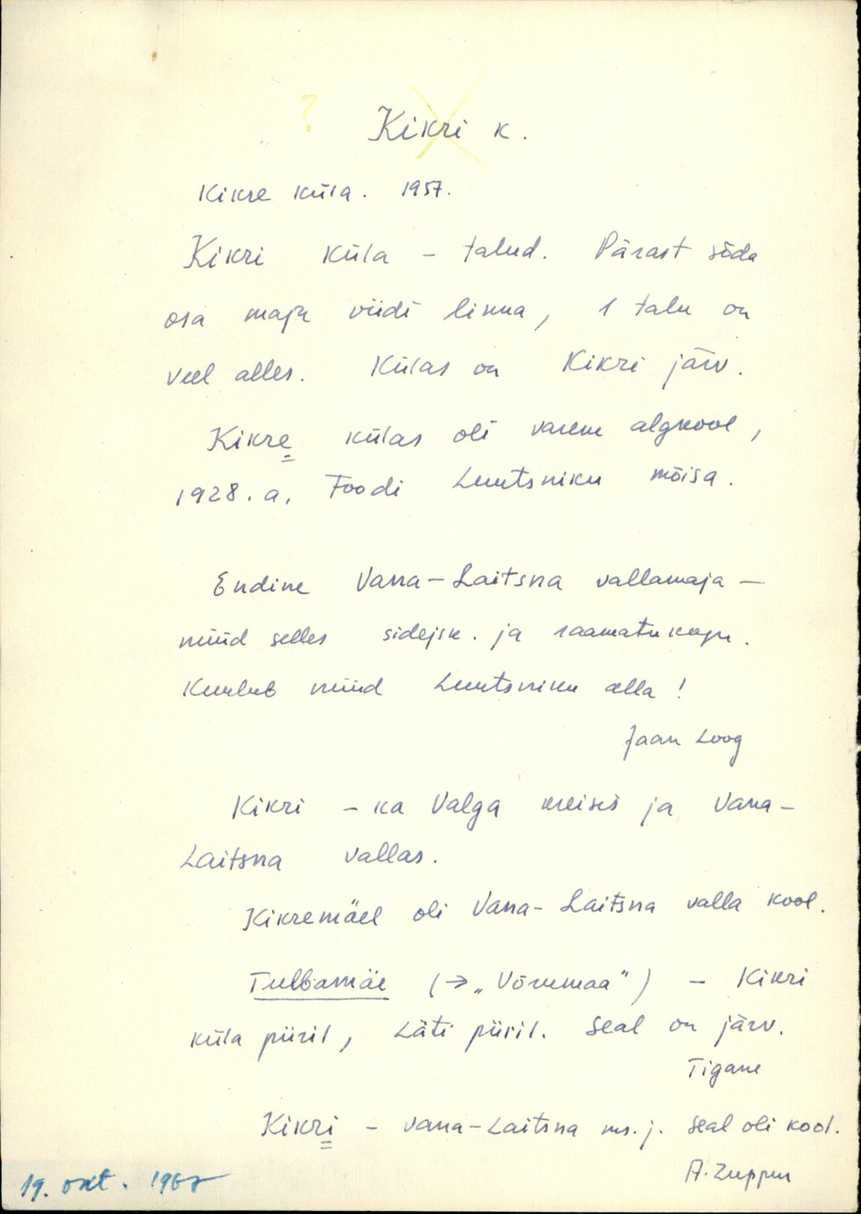 ?
Kikri k.
Kikre küla. 1957.
Kikri küla – talud. Pärast sõda
osa maju viidi linna, 1 talu on
veel alles. Külas on Kikri järv.
Kikre külas oli varem algkool,
1928. a. Toodi Luutsniku mõisa.
Endine Vana-Laitsna vallamaja –
nüüd selles sidejsk. ja raamatukogu.
Kuulub nüüd Luutsniku alla!
Jaan Loog
Kikri – ka Valga kreisis ja Vana-
Laitsna vallas.
Kikremäel oli Vana-Laitsna valla kool.
Tulbamäe (→ „Võrumaa") – Kikri
küla piiril, Läti piiril. Seal on järv.
Tigane
Kikri – Vana-Laitsna ms. j. Seal oli kool.
A. Zuppur
19. okt. 1967